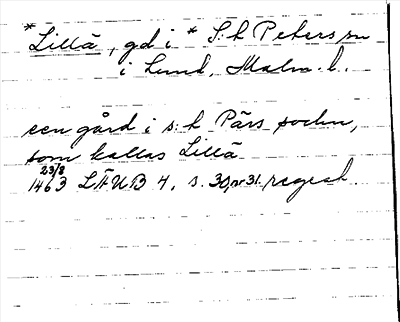 *Lillä, gd i * S:t Peters sn
i Lund, Malm. l.
een gård i s:t Pärs sochn,
som kallas Lillä
23/8
1463 LÄUB 4, s. 30, nr 31. regest.